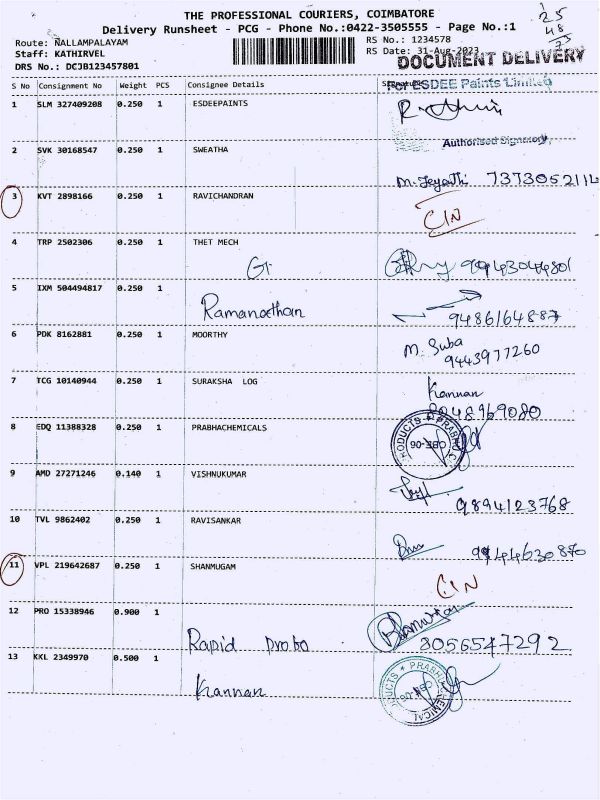 THE PROFESSIONAL COURIERS, COIMBATORE
Delivery Runsheet - PCG - Phone No.:0422-3505555 - Page No.:1
25
48
73
Route: NALLAMPALAYAM
RS No.: 1234578
Staff: KATHIRVEL
RS Date: 31-Aug-2023
DRS No.: DCJB123457801
DOCUMENT DELIVERY
S No Consignment No Weight PCS Consignee Details
For ESDEE Paints Limited
1 SLM 327409208 0.250 1 ESDEEPAINTS
Authorised Signatory
2 SVK 30168547 0.250 1 SWEATHA
M. Jeyathi 7373052114
3 KVT 2898166 0.250 1 RAVICHANDRAN
CIN
4 TRP 2502306 0.250 1 THET MECH
5 IXM 504494817 0.250 1
Ramanathan
9486164887
6 PDK 8162881 0.250 1 MOORTHY
M. Suba
9443977260
7 TCG 10140944 0.250 1 SURAKSHA LOG
Kannan
8048969080
8 EDQ 11388328 0.250 1 PRABHACHEMICALS
CBE-06
9 AMD 27271246 0.140 1 VISHNUKUMAR
9894123768
10 TVL 9862402 0.250 1 RAVISANKAR
9944630870
11 VPL 219642687 0.250 1 SHANMUGAM
CIN
12 PRO 15338946 0.900 1
Rapid Proto
8056547292
13 KKL 2349970 0.500 1
Kannan